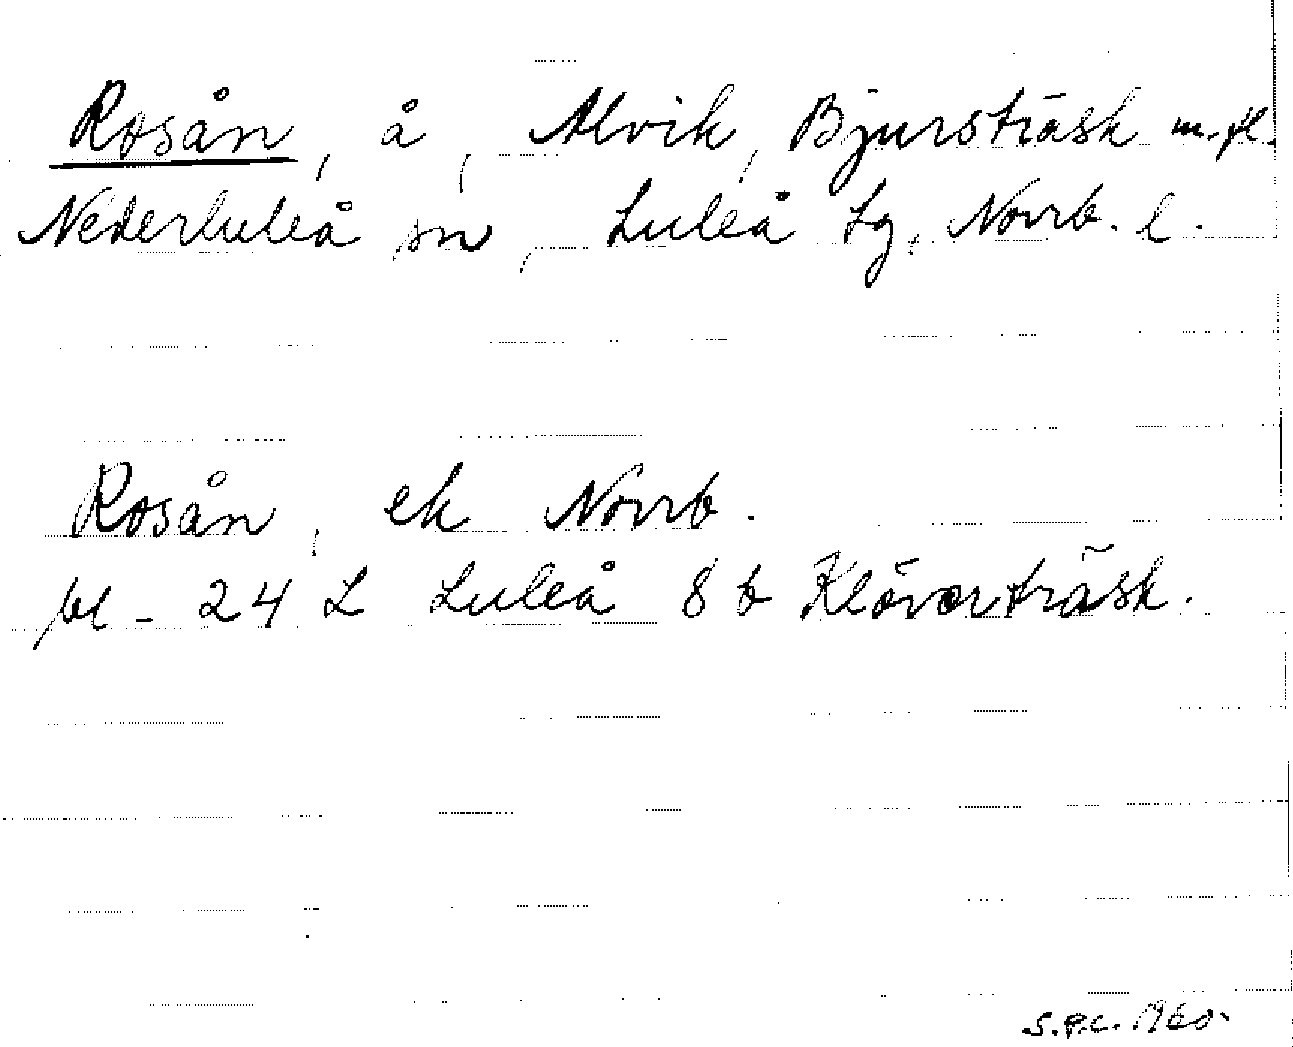 Rosån, å, Alvik, Bjursträsk m.fl.
Nederluleå sn, Luleå tg, Norrb. l.
Rosån, ek Norrb.
bl - 24 L Luleå 8 b Klöverträsk.
S.P.C. 1960.